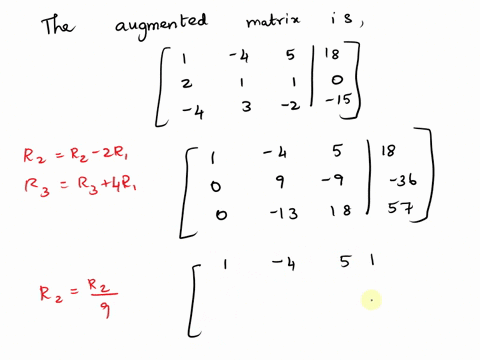 The augmented matrix is,
1 -4 5 | 18
2 1 1 | 0
-4 3 -2 | -15
R2 = R2 - 2R1
R3 = R3 + 4R1
1 -4 5 | 18
0 9 -9 | -36
0 -13 18 | 57
R2 = R2/9
1 -4 5 1